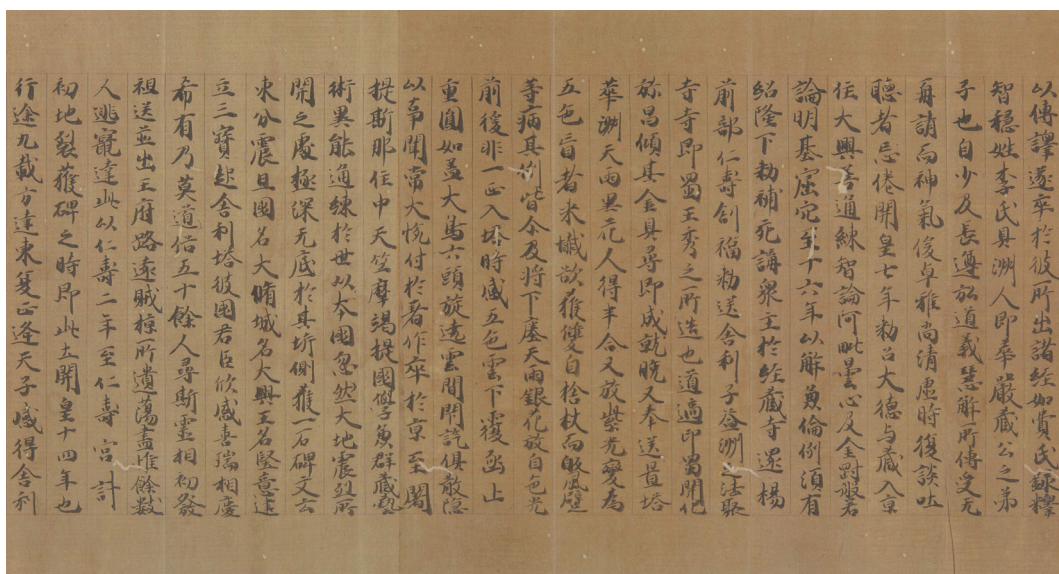 以傳譯遂卒於彼所出諸經如費氏錄釋
智穩姓李氏貝洲人即華嚴藏公之弟
子也自少及長遵弘道義慧解所傳受无
再請而神氣俊卓雅尚清虛時復談吐
聽者忘倦開皇七年勑召大德与藏入京
住大興善通練智論阿毗曇心及金剛般若
論明其窟宅至十六年以解兼倫例須有
紹隆下勑補死講眾主於経藏寺還揚
前部仁壽創福勑送舍利于益洲之法聚
寺寺即蜀王秀之所造也道適卭蜀開化
弥昌傾其金貝尋即成就晚又奉送置塔
莘洲天雨異花人得半合又放紫光變為
五色盲者来懴欲獲雙目捨杖而 風躄
等病其例皆今及將下塵天雨銀花放白色光
前後非一正入塔時感五色雲下覆 上
重圓如盖大鳥六頭旋遶雲間閇訖俱散隱
以事聞帝大悅付於著作卒於京至闍
提斯那住中天竺摩竭提國學兼群藏藝
術異能通練於世以夲國忽然大地震烈所
開之處極深无底於其圻側獲一石碑文云
東分震旦國名大隋城名大興王名堅意建
立三寶起舍利塔彼國君臣欣感嘉瑞相慶
希有乃莫道俗五十餘人尋斯靈相初發
祖送並出王府路遠賊掠所遺蕩盡惟餘數
人逃竄達此以仁壽二年至仁壽宮計
初地裂獲碑之時即此土開皇十四年也
行途九載方達東夏正逢天子感得舍利